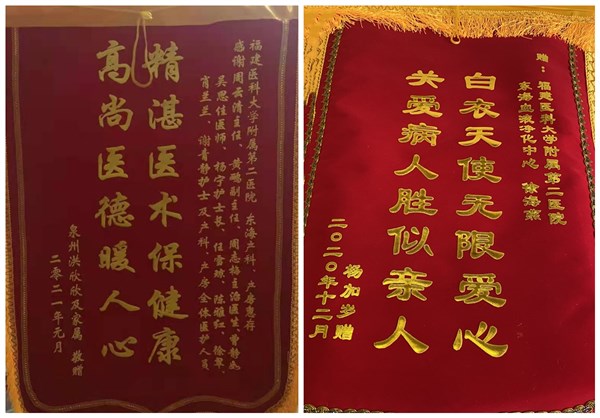 福建医科大学附属第二医院 东海产科、产房惠存
感谢周云清主任、黄鹂副主任、周惠梅主治医生、曹静
吴思佳医师、杨宁护士长、任雪琼、陈雅红、徐翠、
肖兰兰、谢青静护士及产科、产房全体医护人员
精湛医术保健康
高尚医德暖人心
泉州洪欣欣及家属 敬赠
二零二一年元月
赠:福建医科大学附属第二医院
东海血液净化中心 徐海燕
白衣天使无限爱心
关爱病人胜似亲人
杨加岁赠
二〇二〇年十二月